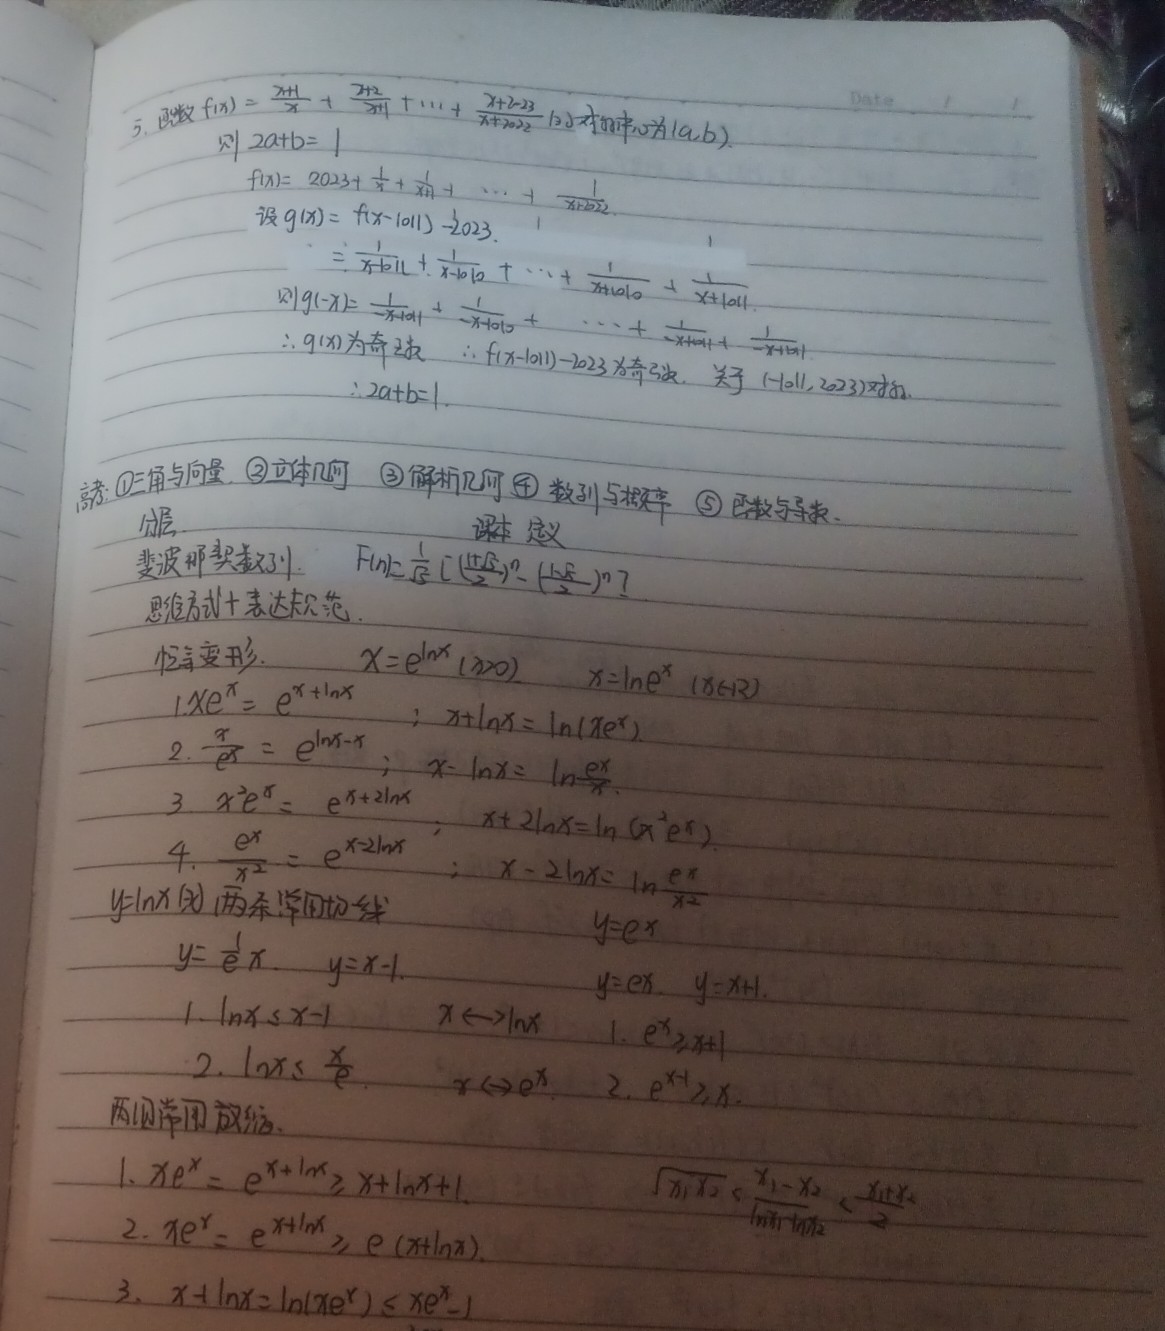 Date
5. 函数 f(x) = \frac{x+1}{x} + \frac{x+2}{x+1} + … + \frac{x+2023}{x+2022} 的对称中心为(a,b).
则 2a+b= 1
f(x)= 2023+ \frac{1}{x} + \frac{1}{x+1} + … + \frac{1}{x+2022}.
设 g(x) = f(x-1011) -2023.
= \frac{1}{x-1011} + \frac{1}{x-1010} + … + \frac{1}{x+1010} + \frac{1}{x+1011}.
则 g(-x)= \frac{1}{-x-1011} + \frac{1}{-x-1010} + … + +
∴ g(x)为奇函数 ∴ f(x-1011)-2023为奇函数. 关于 (-1011, 2023)对称.
∴ 2a+b=1.
高考: ①三角与向量 ②立体几何 ③解析几何 ④数列与概率 ⑤函数与导数.
分层 课本 定义
斐波那契数列. F(n)= \frac{1}{√5} [(\frac{1+√5}{2})^n - (\frac{1-√5}{2})^n]
思维方式+表达规范.
恒等变形. x = e^{lnx} (x>0) x=lne^x (x∈R)
1. xe^x = e^{x+lnx} ; x+lnx = ln(xe^x)
2. \frac{x}{e^x} = e^{lnx-x} ; x-lnx = ln\frac{e^x}{x}.
3. x^2e^x = e^{x+2lnx} ; x+2lnx=ln(x^2e^x).
4. \frac{e^x}{x^2} = e^{x-2lnx} ; x-2lnx= ln\frac{e^x}{x^2}
y=lnx的两条常用切线 y=e^x
y= \frac{1}{e}x. y=x-1. y=ex. y=x+1.
1. lnx≤x-1 x↔lnx 1. e^x≥x+1
2. lnx≤\frac{x}{e}. x↔e^x. 2. e^{x-1}≥x.
两组常用放缩.
1. xe^x = e^{x+lnx} ≥ x+lnx+1. √x₁x₂ < \frac{x₁-x₂}{lnx₁-lnx₂} < \frac{x₁+x₂}{2}
2. xe^x = e^{x+lnx} ≥ e(x+lnx).
3. x+lnx=ln(xe^x) ≤ xe^x-1